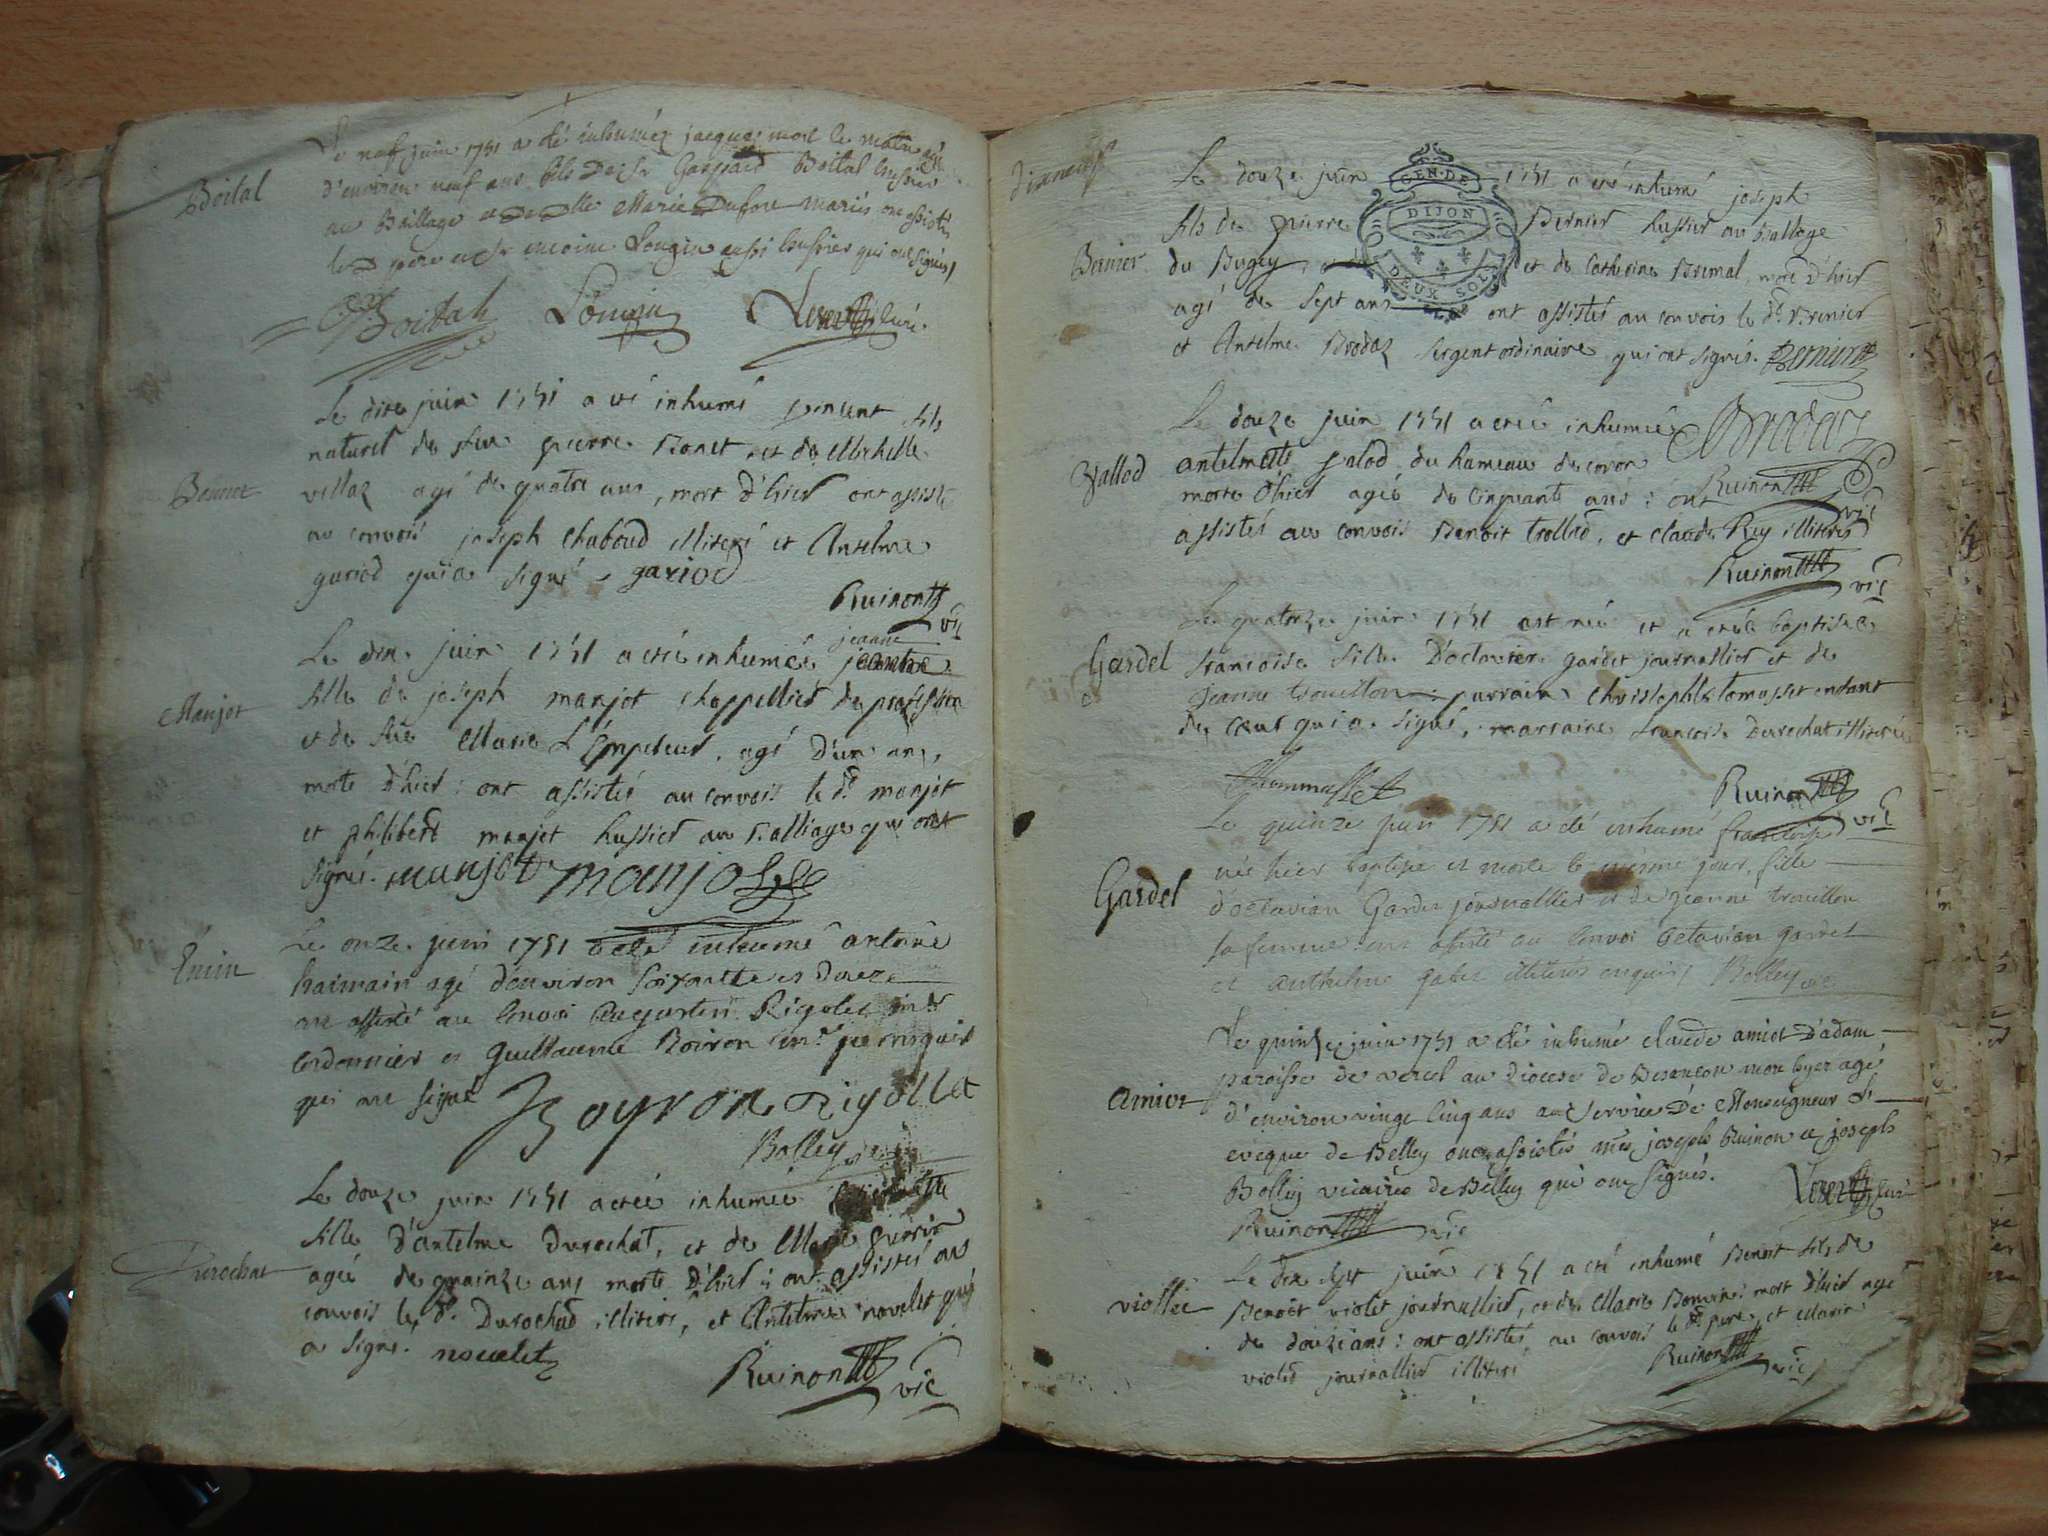 Boital
Le neuf juin 1751 a été inhumé jacques mort le matin agé
d'environ neuf ans fils de Sr Gaspard Boital hussier
au Baillage et de Dlle Marie Dufour mariés ont assistés
le père et Sr Longin aussi huissier qui ont signés
Boital Longin curé
Le dixe juin 1751 a eté inhumé fils
naturel de feu pierre Bonet et de Michelle
Bonnet
villaz agé de quatre ans, mort d'hier ont assisté
au convois joseph Chaboud illiteré et Anselme
gariod qui a signé gariod
Ruinon vic
Le dix juin 1751 a eté inhumée jeanne
fille de joseph manjot chappellier de profession
Manjot
et de Marie L'Empereur, agé d'un ans,
morte d'hier : ont assistés au convois le d. manjot
et philibert manjot hussier au balliage qui ont
signés. manjot manjot
Le onze juin 1751 a été inhumé antoine
Emin
haimain agé d'environ soixante et douze
ont assisté au convoi augustin Rigolet
cordonnier et Guillaume Boiron
qui ont signé Boyron Rigollet
Bolley
Le douze juin 1751 a eté inhumée
fille d'antelme Durochat, et de Marie
Durochat
ageé de quainze ans morte d'hier : ont assistés au
convois le d. Durochad illiteré, et Antelme novelet qui
a signé. novelet
Ruinon vic
Le douze juin 1751 a eté inhumé joseph
GEN. DE
DIJON
DEUX SOLS
fils de pierre Bernier hussier au balliage
Bernier
du Bugey, et de Catherine Brimal, mort d'hier
agé de sept ans ont assistés au convois le d. Bernier
et Antelme Brodaz sergent ordinaire qui ont signés. Bernier
Le douze juin 1751 a eteé inhumée Brodaz
Vallod
antelmette valod du hameau de coron
morte d'hier ageé de cinquante ans : ont Ruinon vic
assistés au convois Benoit trollied, et claude Rey illiterés
Ruinon vic
Le quatorze juin 1751 est neé et a eteé baptiseé
Gardel
francoise fille D'octavien gardet journallier et de
Jeanne trouillon parrain Christophle tomasset enfant
de cœur qui a signé, marraine francoise Durochat illitereé
Thommasset Ruinon vic
Le quinze juin 1751 a été inhumé francoise
neé hier baptisé et morte le même jour, fille
Gardel
d'octavian Gardet journallier et de jeanne trouillon
sa femme ont assisté au convoi octavian gardet
et anthelme illiterés enquis Bolley vic
Le quinze juin 1751 a été inhumé claude amiot d'adam
paroisse de vercel au Diocese de Besançon mort hyer agé
Amiot
d'environ vingt cinq ans au service De Monseigneur L'
eveque de Belley ont assistés mes joseph Ruinon et joseph
Bolley vicaires de Belley qui ont signés. curé
Ruinon vic
Le dix sept juin 1751 a eté inhumé Benoit fils de
viollet
Benoît violet journallier, et de Marie Bonvin : mort d'hier agé
de douze ans : ont assistés au convois le d. pere, et Marin
violet journallier illiterés Ruinon vic